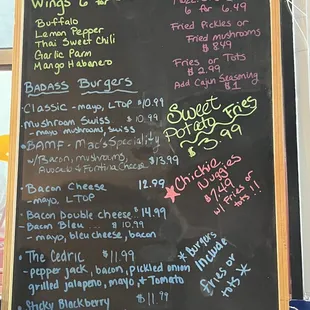 Wings 6 for
Buffalo
Lemon Pepper
Thai Sweet Chili
Garlic Parm
Mango Habanero
Badass Burgers
Classic - mayo, LTOP $10.99
Mushroom Swiss $10.99
- mayo, mushrooms, swiss
BAMF - Mac's Speciality
w/ Bacon, mushrooms, $13.99
Avocado & Fontina Cheese
Bacon Cheese 12.99
- mayo, LTOP
Bacon Double cheese $14.99
Bacon Bleu $10.99
- mayo, bleu cheese, bacon
The Cedric $11.99
- pepper jack, bacon, pickled onion
grilled jalapeño, mayo, + Tomato
Sticky Blackberry $11.99
6 for 6.49
Fried Pickles or
Fried mushrooms
$8.49
Fries or Tots
$2.99
Add Cajun Seasoning
$1
Sweet
Potato Fries
$3.99
Chickie
Nuggies
$7.49
w/ Fries or
tots!!
* Burgers
Include
fries or
tots *